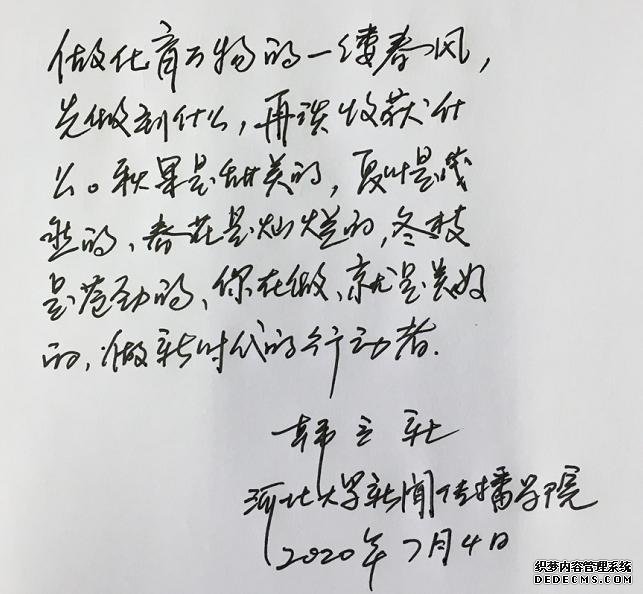 做化育万物的一缕春风，
先做到什么，再谈收获什
么。秋果是甜美的，夏叶是茂
盛的、春花是灿烂的，冬枝
是苍劲的、你在做、就是美好
的，做新时代的行动者.
韩立新
河北大学新闻传播学院
2020年7月4日
织梦内容管理系统
DEDECMS.COM